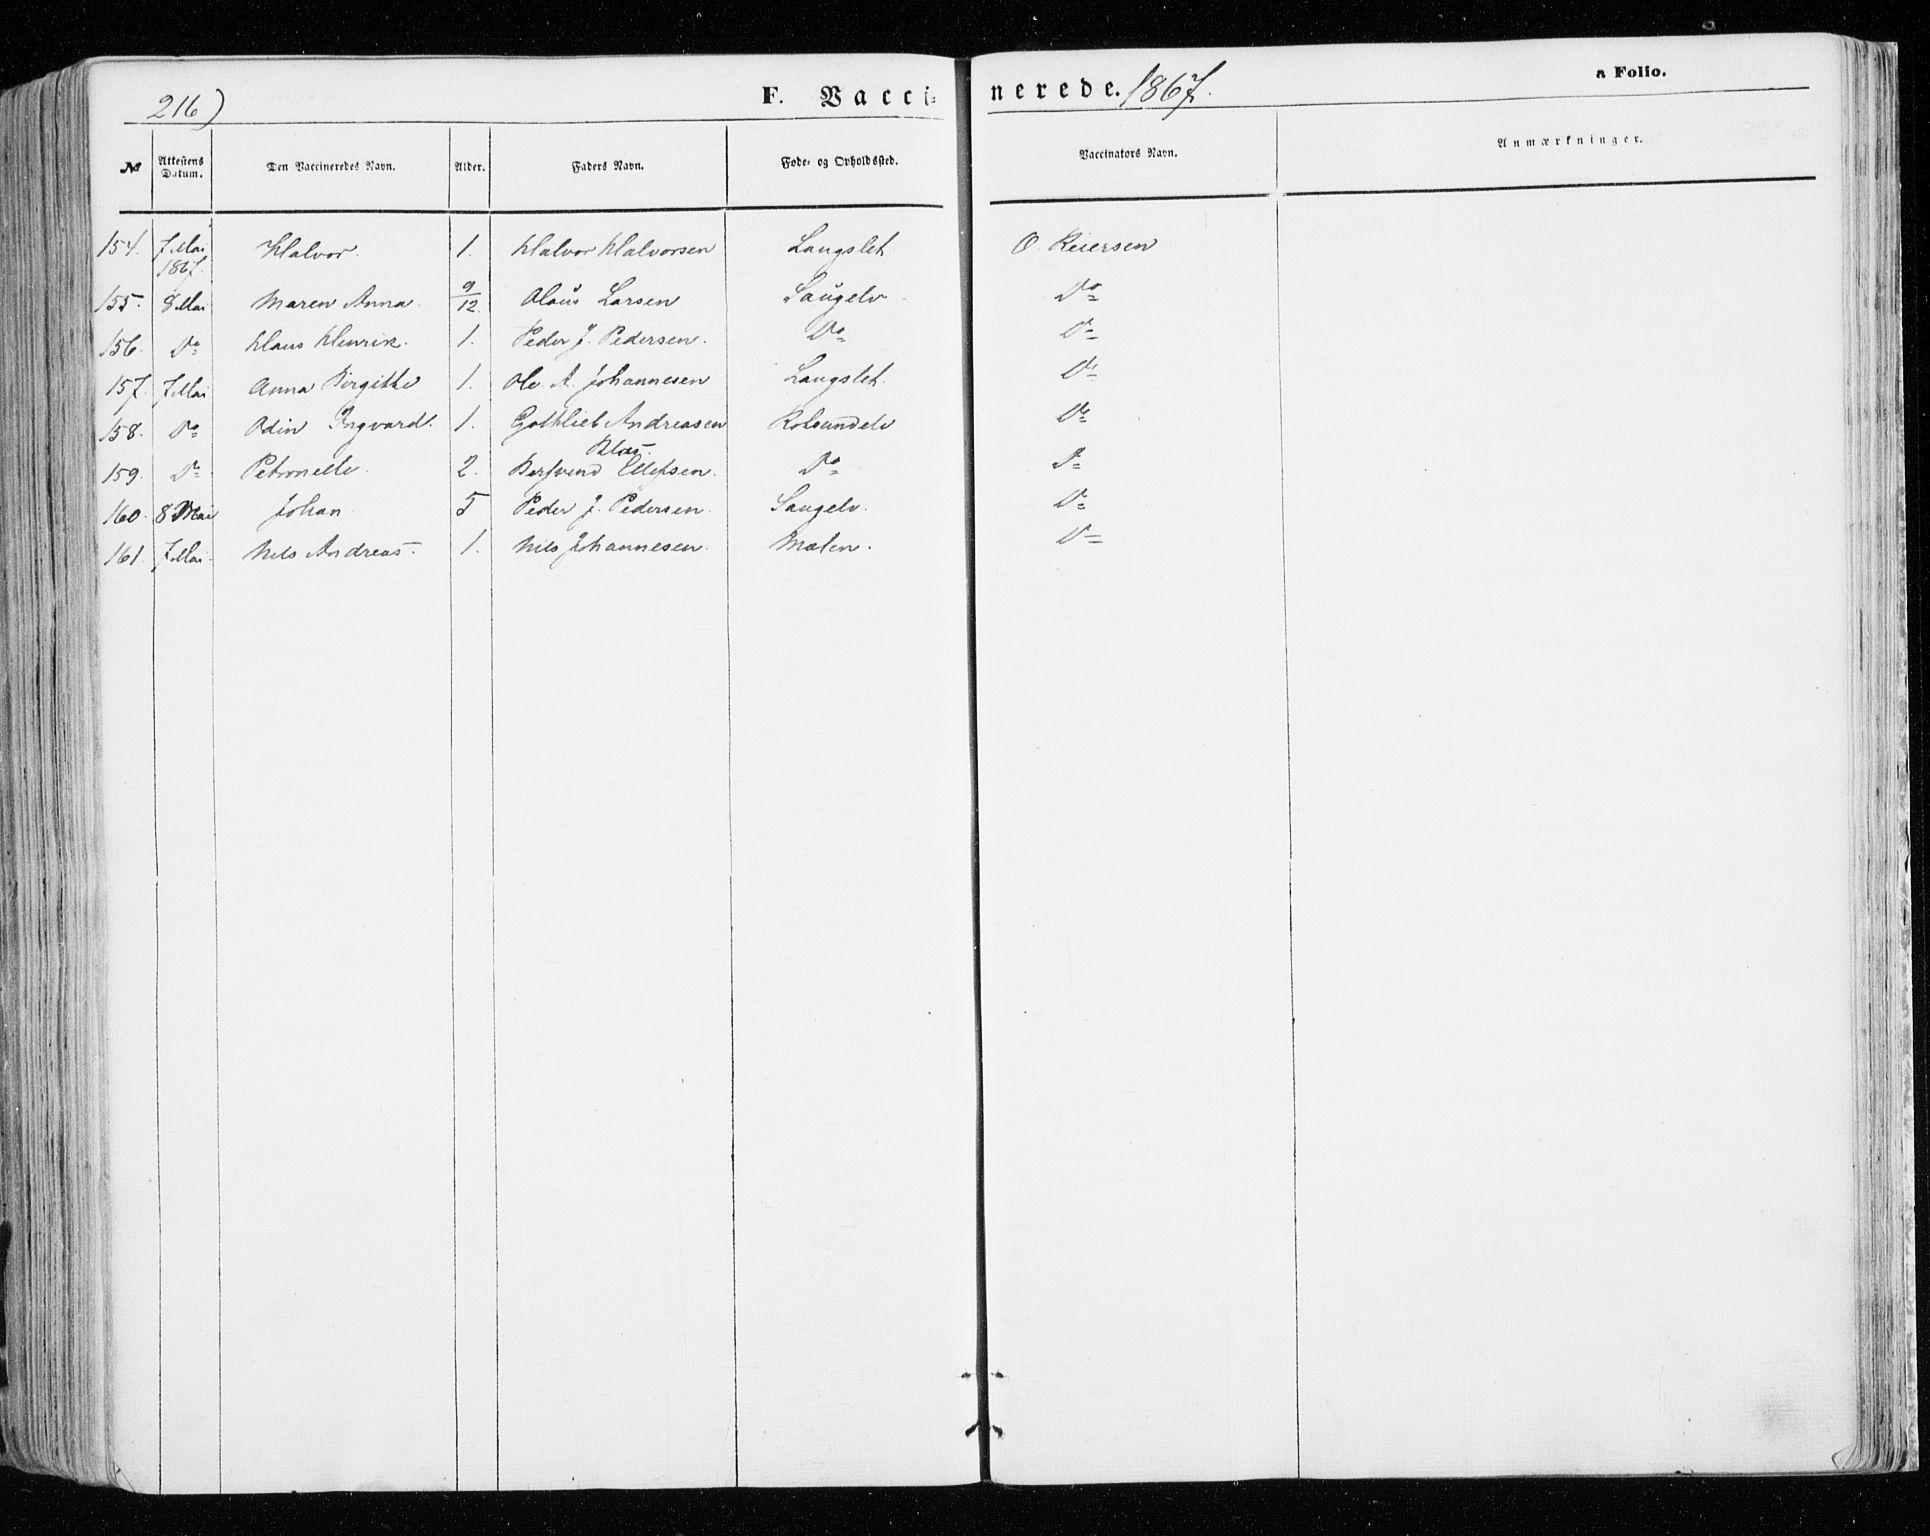 216)
F. Vacci-nerede. 1867.
a Folio.
№ Attestens Datum. Den Vaccineredes Navn. Alder. Faders Navn. Føde- og Opholdssted. Vaccinators Navn. Anmærkninger.
154. 7 Mai 1867. Halvor. 1. Halvor Halvorsen Langslet O. Reiersen
155. 8 Mai Maren Anna. 9/12. Olaus Larsen Saugelv Do
156. Do Klaus Henrik. 1. Peder J. Pedersen. Do Do
157. 7 Mai Anna Birgitte 1. Ole A. Johannesen Langslet. Do
158. Do Odin Ingvard. 1. Gottlieb Andreasen Kobsundelv Do
159. Do Petronelle. 2. Ellefsen. Do Do
160. 8 Mai Johan 5 Peder J. Pedersen. Saugelv. Do
161. 7 Mai. Nils Andreas. 1. Nils Johannesen. Malen. Do